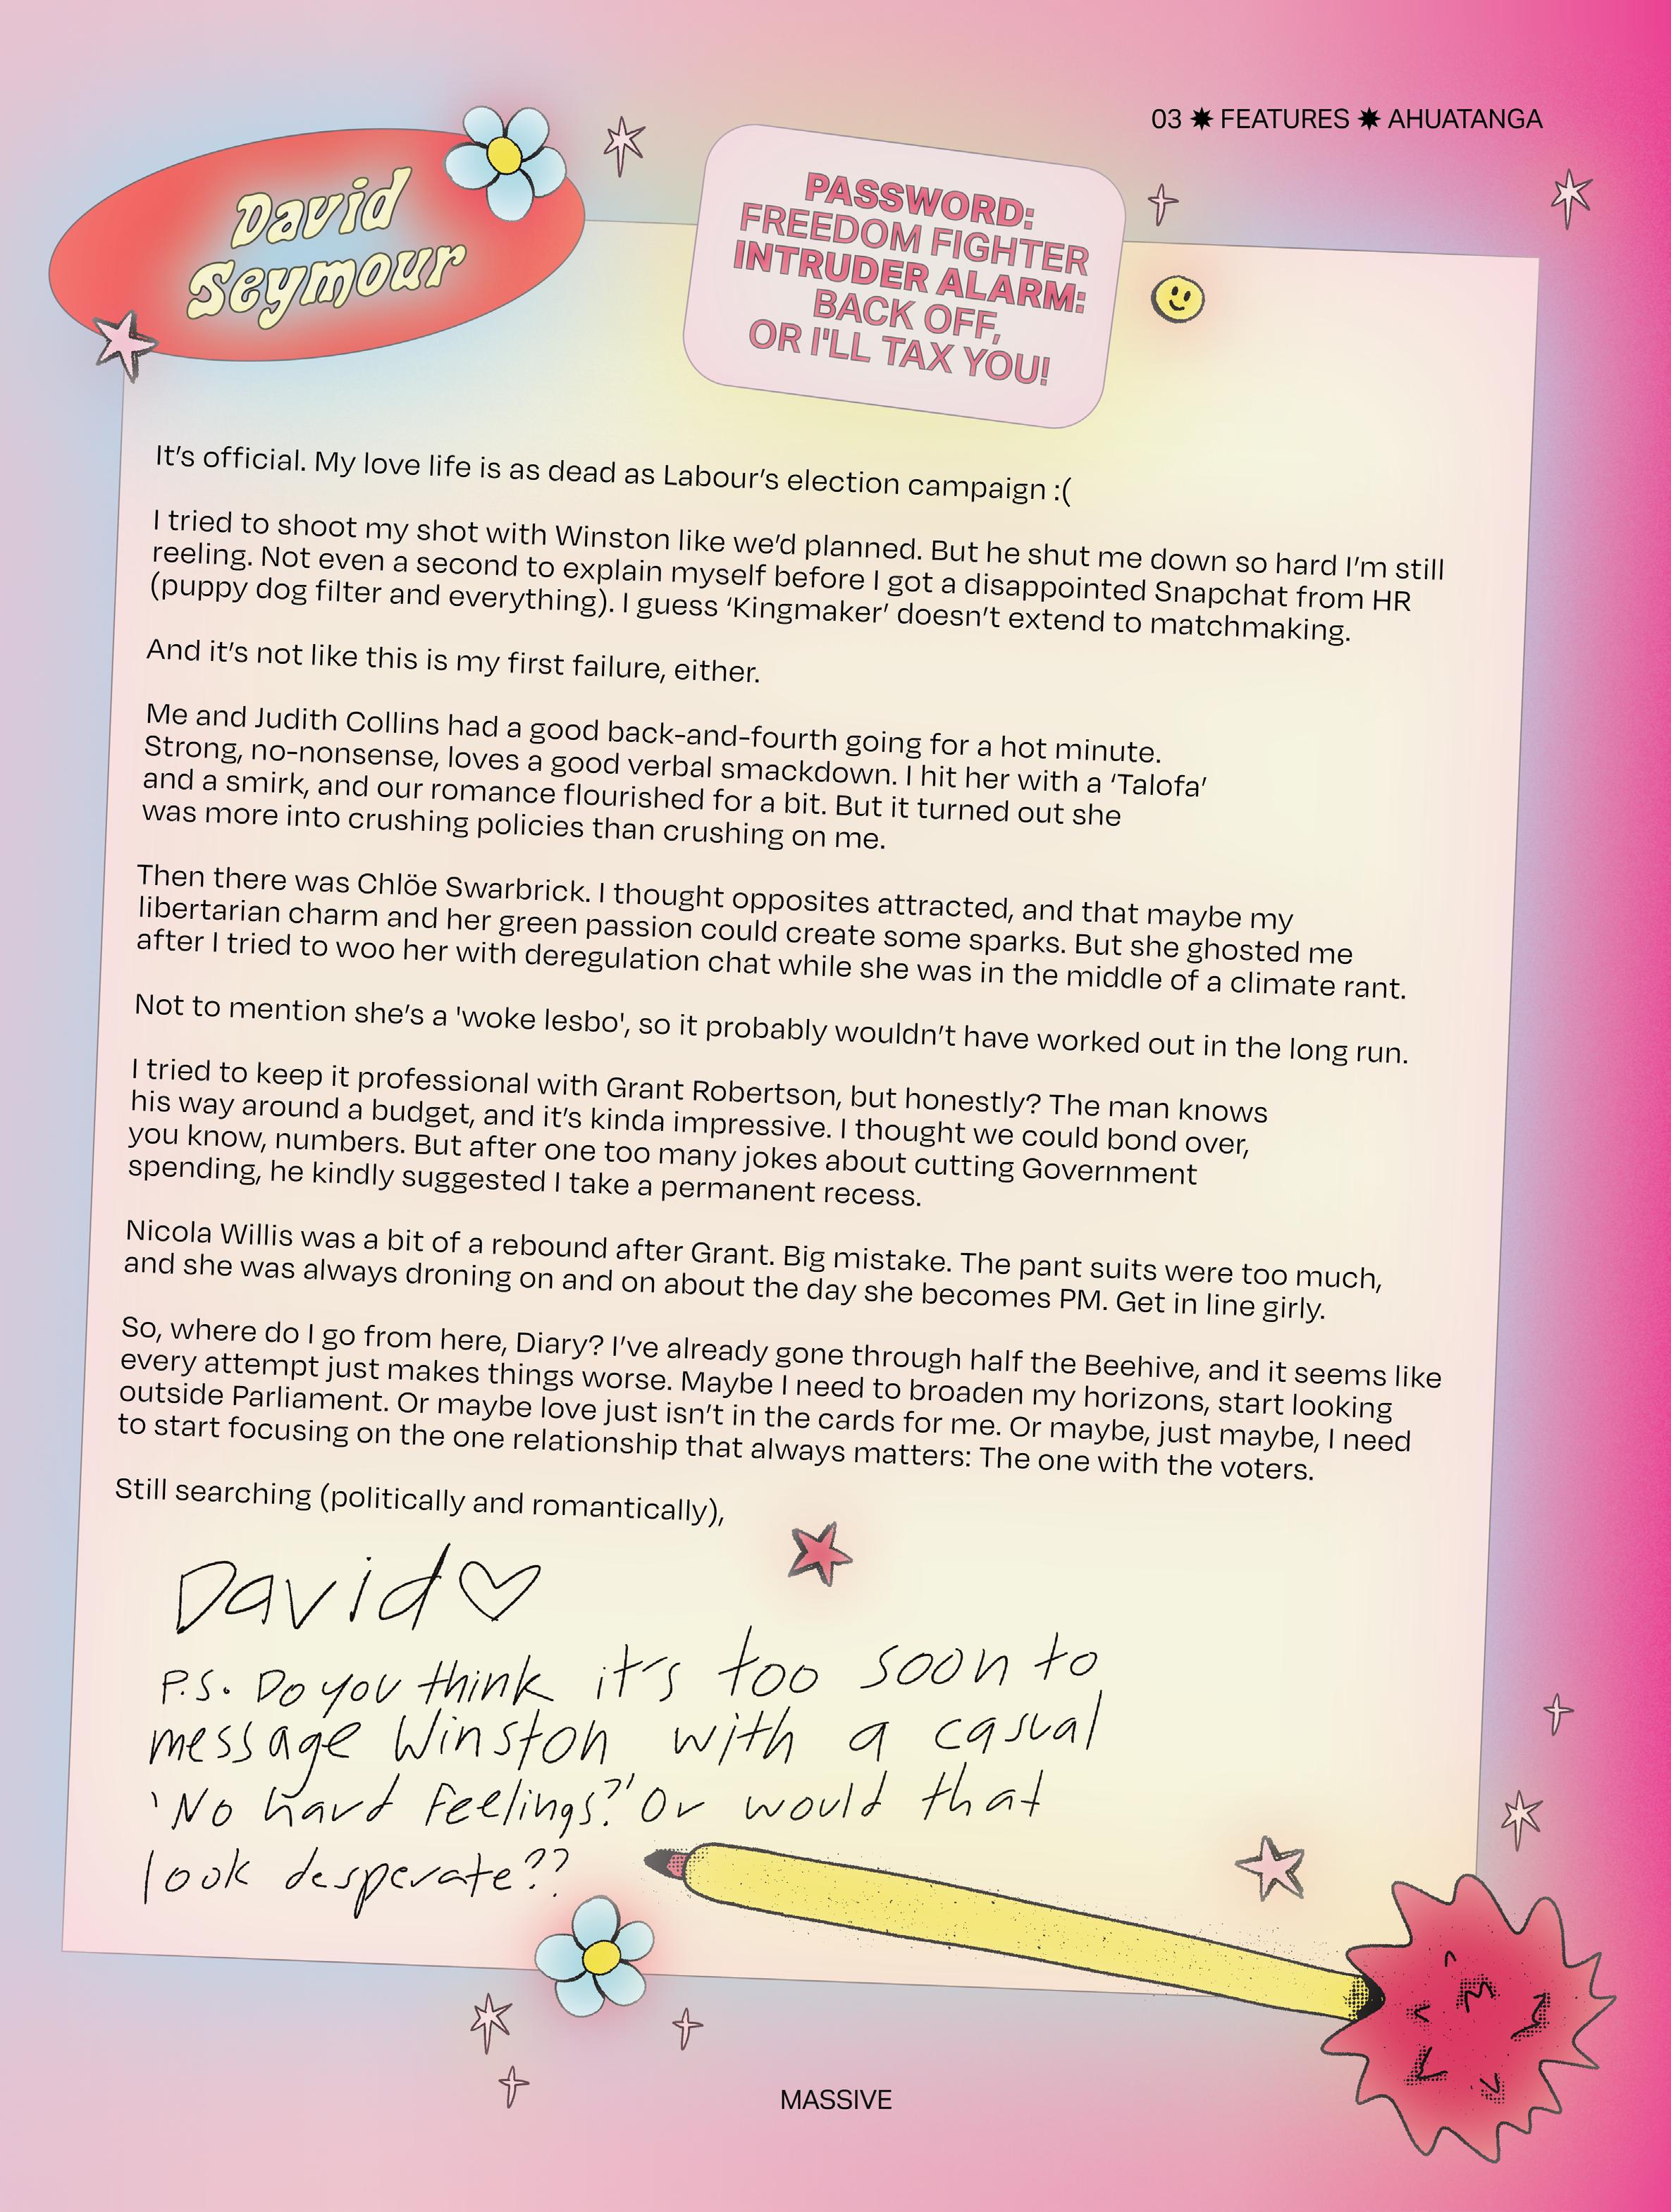 03 ✸ FEATURES ✸ AHUATANGA
David
Seymour
PASSWORD:
FREEDOM FIGHTER
INTRUDER ALARM:
BACK OFF,
OR I'LL TAX YOU!
It’s official. My love life is as dead as Labour’s election campaign :(
I tried to shoot my shot with Winston like we’d planned. But he shut me down so hard I’m still
reeling. Not even a second to explain myself before I got a disappointed Snapchat from HR
(puppy dog filter and everything). I guess ‘Kingmaker’ doesn’t extend to matchmaking.
And it’s not like this is my first failure, either.
Me and Judith Collins had a good back-and-fourth going for a hot minute.
Strong, no-nonsense, loves a good verbal smackdown. I hit her with a ‘Talofa’
and a smirk, and our romance flourished for a bit. But it turned out she
was more into crushing policies than crushing on me.
Then there was Chlöe Swarbrick. I thought opposites attracted, and that maybe my
libertarian charm and her green passion could create some sparks. But she ghosted me
after I tried to woo her with deregulation chat while she was in the middle of a climate rant.
Not to mention she’s a 'woke lesbo', so it probably wouldn’t have worked out in the long run.
I tried to keep it professional with Grant Robertson, but honestly? The man knows
his way around a budget, and it’s kinda impressive. I thought we could bond over,
you know, numbers. But after one too many jokes about cutting Government
spending, he kindly suggested I take a permanent recess.
Nicola Willis was a bit of a rebound after Grant. Big mistake. The pant suits were too much,
and she was always droning on and on about the day she becomes PM. Get in line girly.
So, where do I go from here, Diary? I’ve already gone through half the Beehive, and it seems like
every attempt just makes things worse. Maybe I need to broaden my horizons, start looking
outside Parliament. Or maybe love just isn’t in the cards for me. Or maybe, just maybe, I need
to start focusing on the one relationship that always matters: The one with the voters.
Still searching (politically and romantically),
David♡
P.S. Do you think it's too soon to
message Winston with a casual
'No hard feelings?' Or would that
look desperate??
MASSIVE